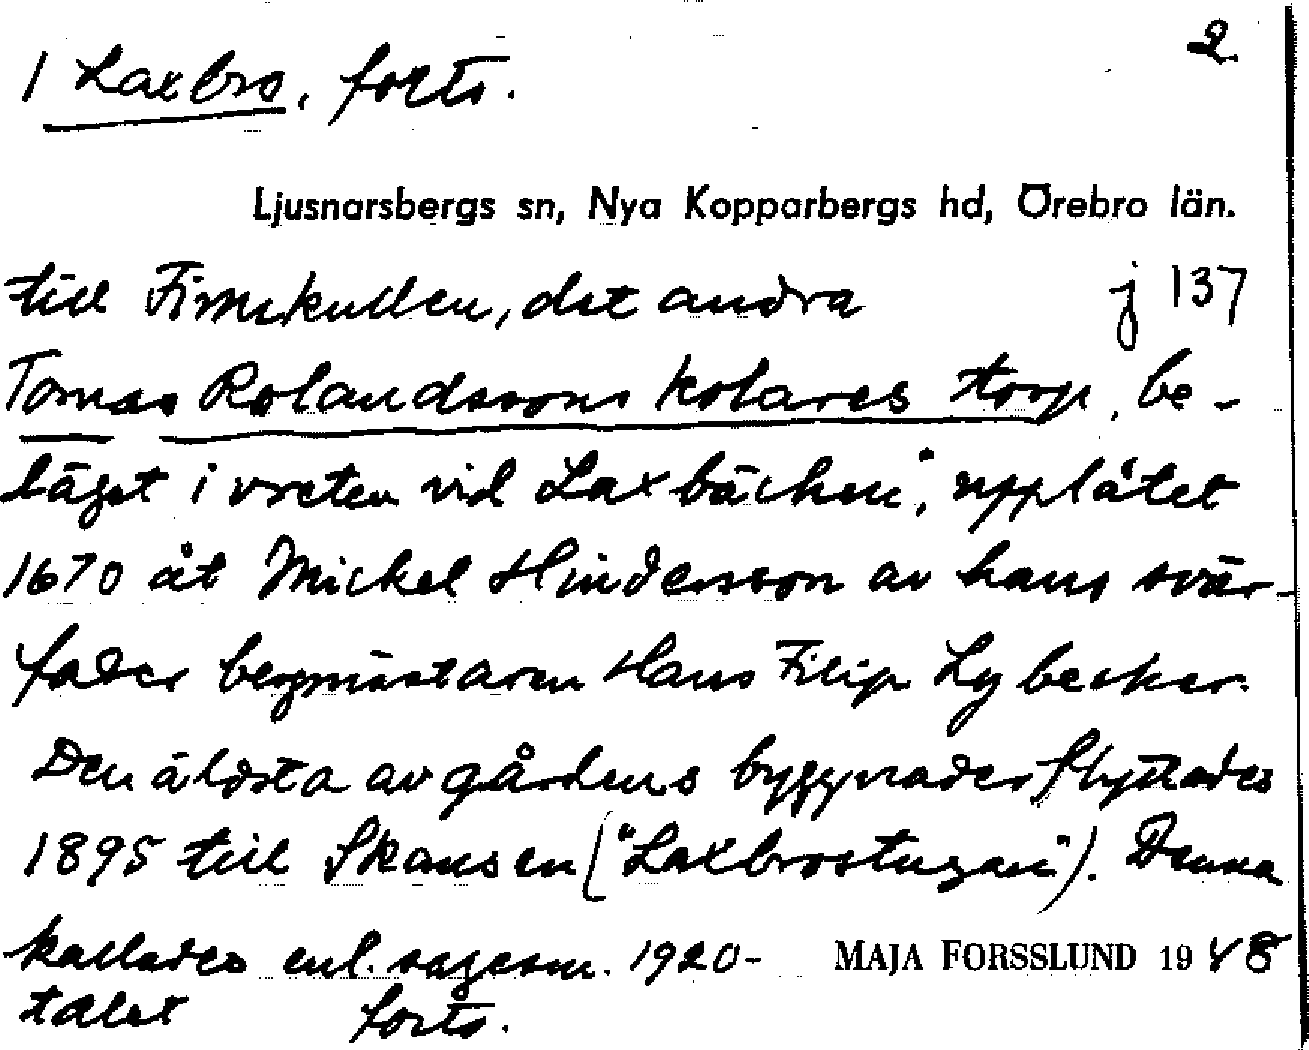 2.
1 Laxbro, forts.
Ljusnarsbergs sn, Nya Kopparbergs hd, Örebro län.
till Finnkullen, det andra j 137
Tomas Rolandssons kolares torp, be-
läget i vreten vid Laxbäcken", upplåtet
1670 åt Mickel Hindersson av hans svär-
fader bergmästaren Hans Filip Lybecker.
Den äldsta av gårdens byggnader flyttades
1895 till Skansen ("Laxbrostugan"). Denna
kallades enl. sagesm. 1920- MAJA FORSSLUND 1948
talet forts.